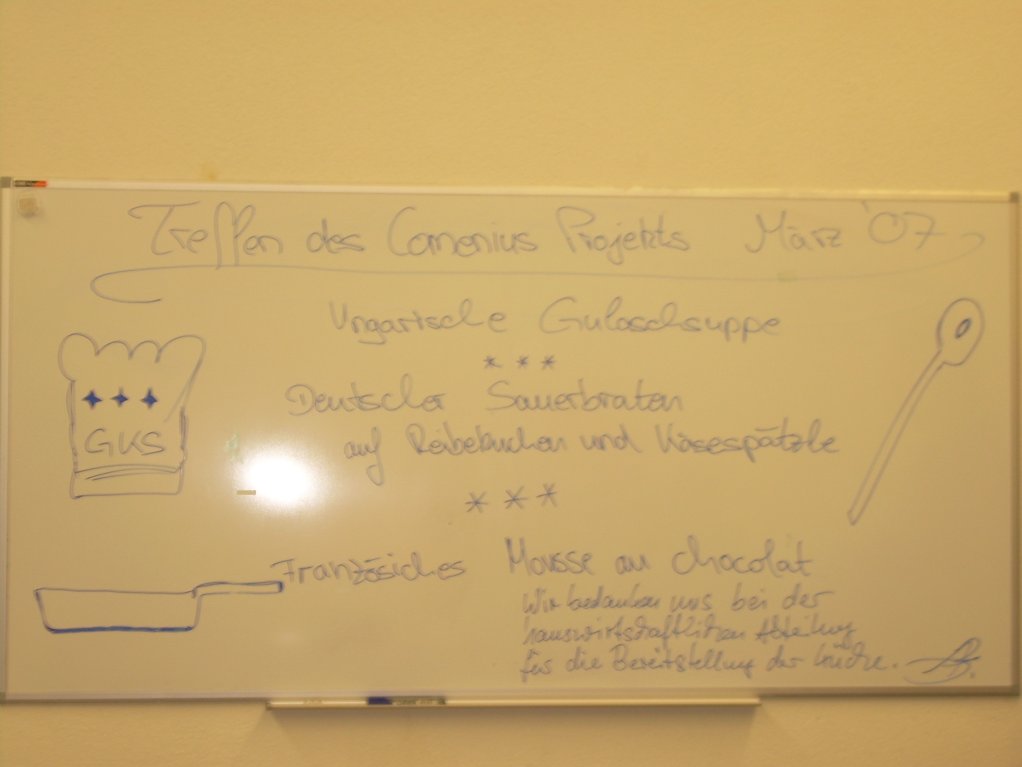 Treffen des Comenius Projekts März '07
Ungarische Gulaschsuppe
* * *
Deutscher Sauerbraten
GKS
auf Reibekuchen und Käsespätzle
* * *
Französiches Mousse au chocolat
Wir bedanken uns bei der
hauswirtschaftlichen Abteilung
für die Bereitstellung der Küche.